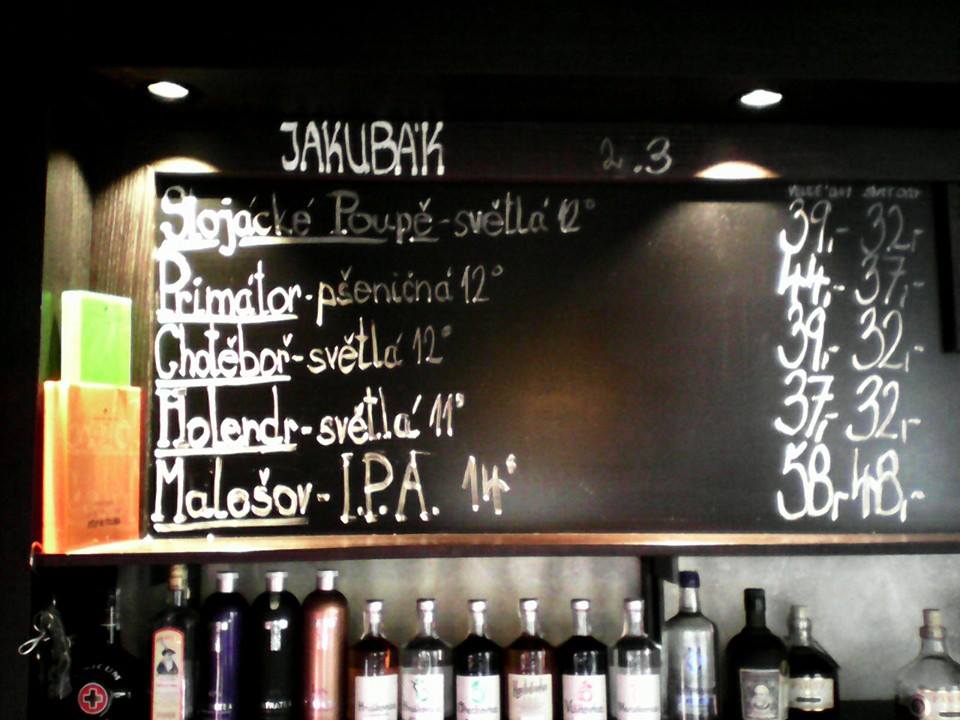 JAKUBÁK 2.3
Stojácké Poupě - světlá 12° 39,- 32,-
Primátor - pšeničná 12° 44,- 37,-
Chotěboř - světlá 12° 39,- 32,-
Molendr - světlá 11° 37,- 32,-
Malešov - I.P.A. 14° 58,- 48,-